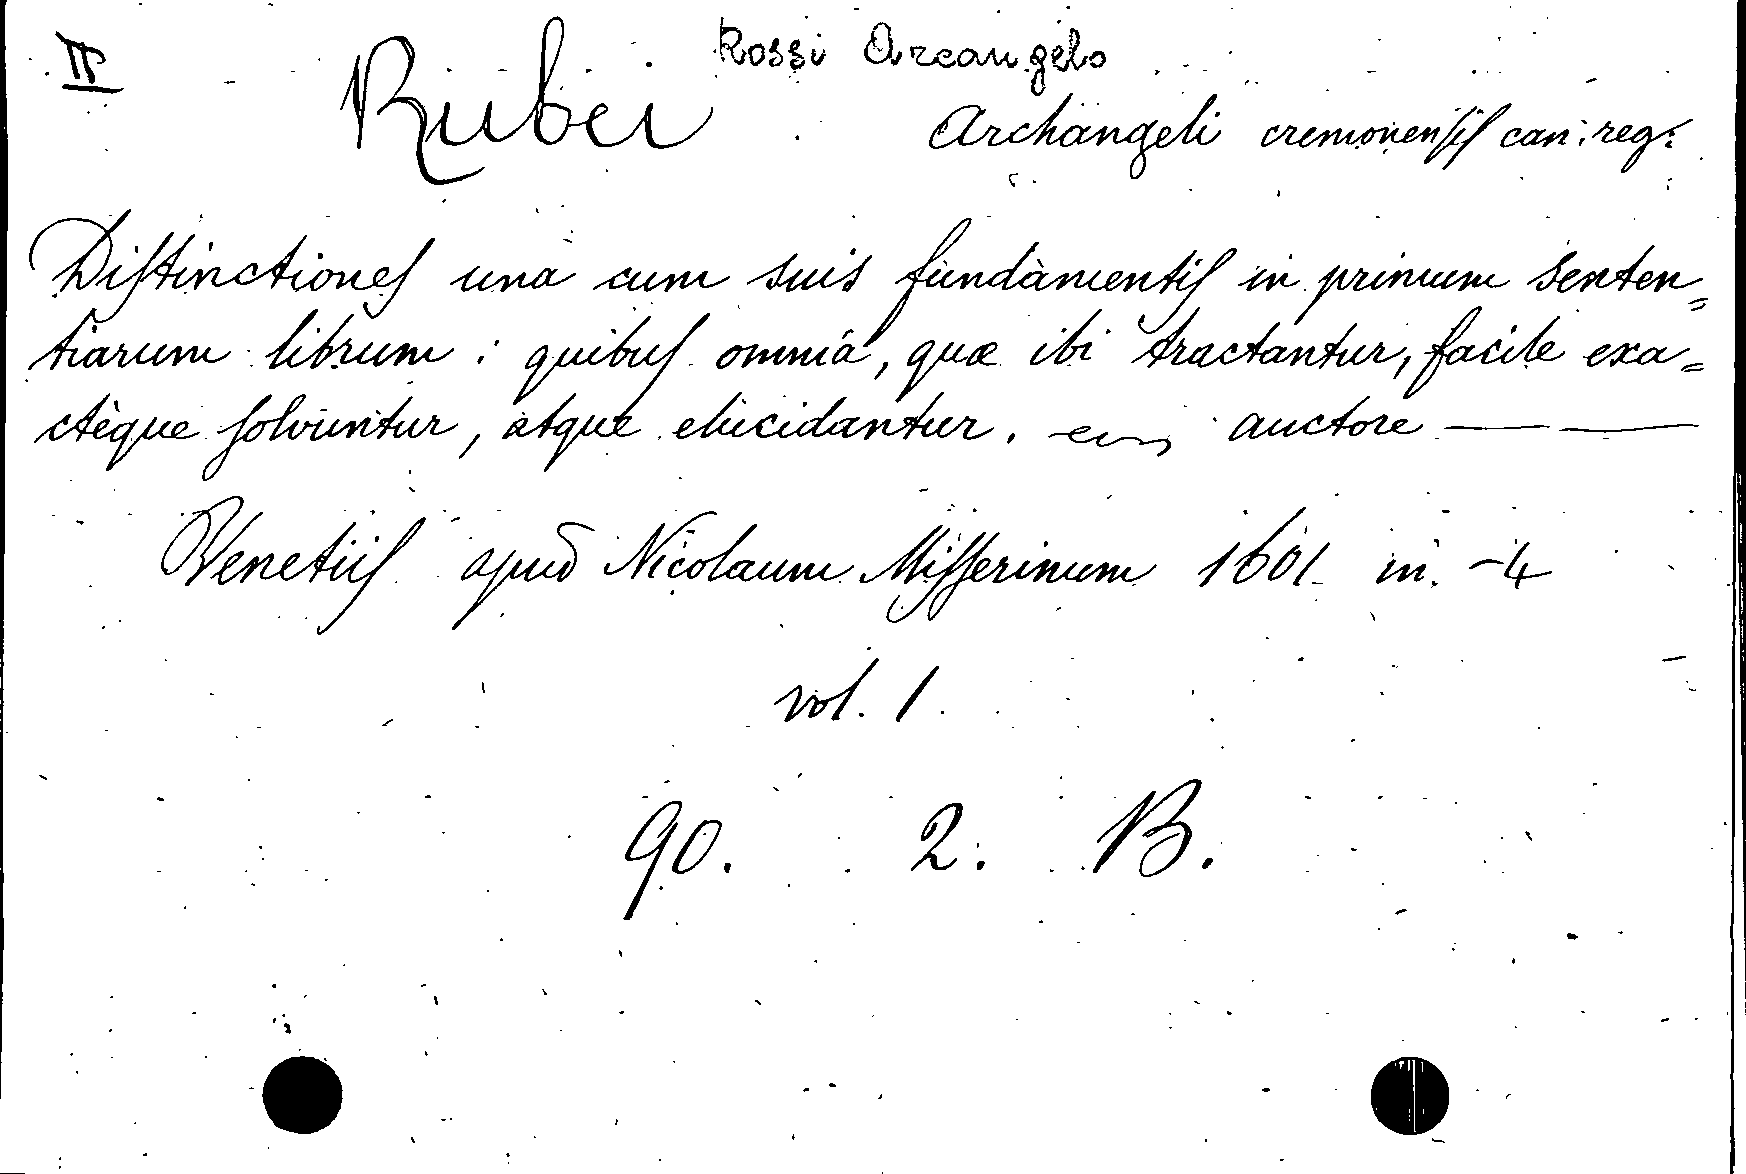 II
Rossi Arcangelo
Rubei Archangeli cremonensis can: reg:
Distinctiones una cum suis fundamentis in primum senten=
tiarum librum: quibus omnia, quæ ibi tractantur, facile exa=
ctèque solvuntur, atque elucidantur. auctore — —
Venetiis apud Nicolaum Misserinum 1601 in -4
vol. 1
90. 2. B.